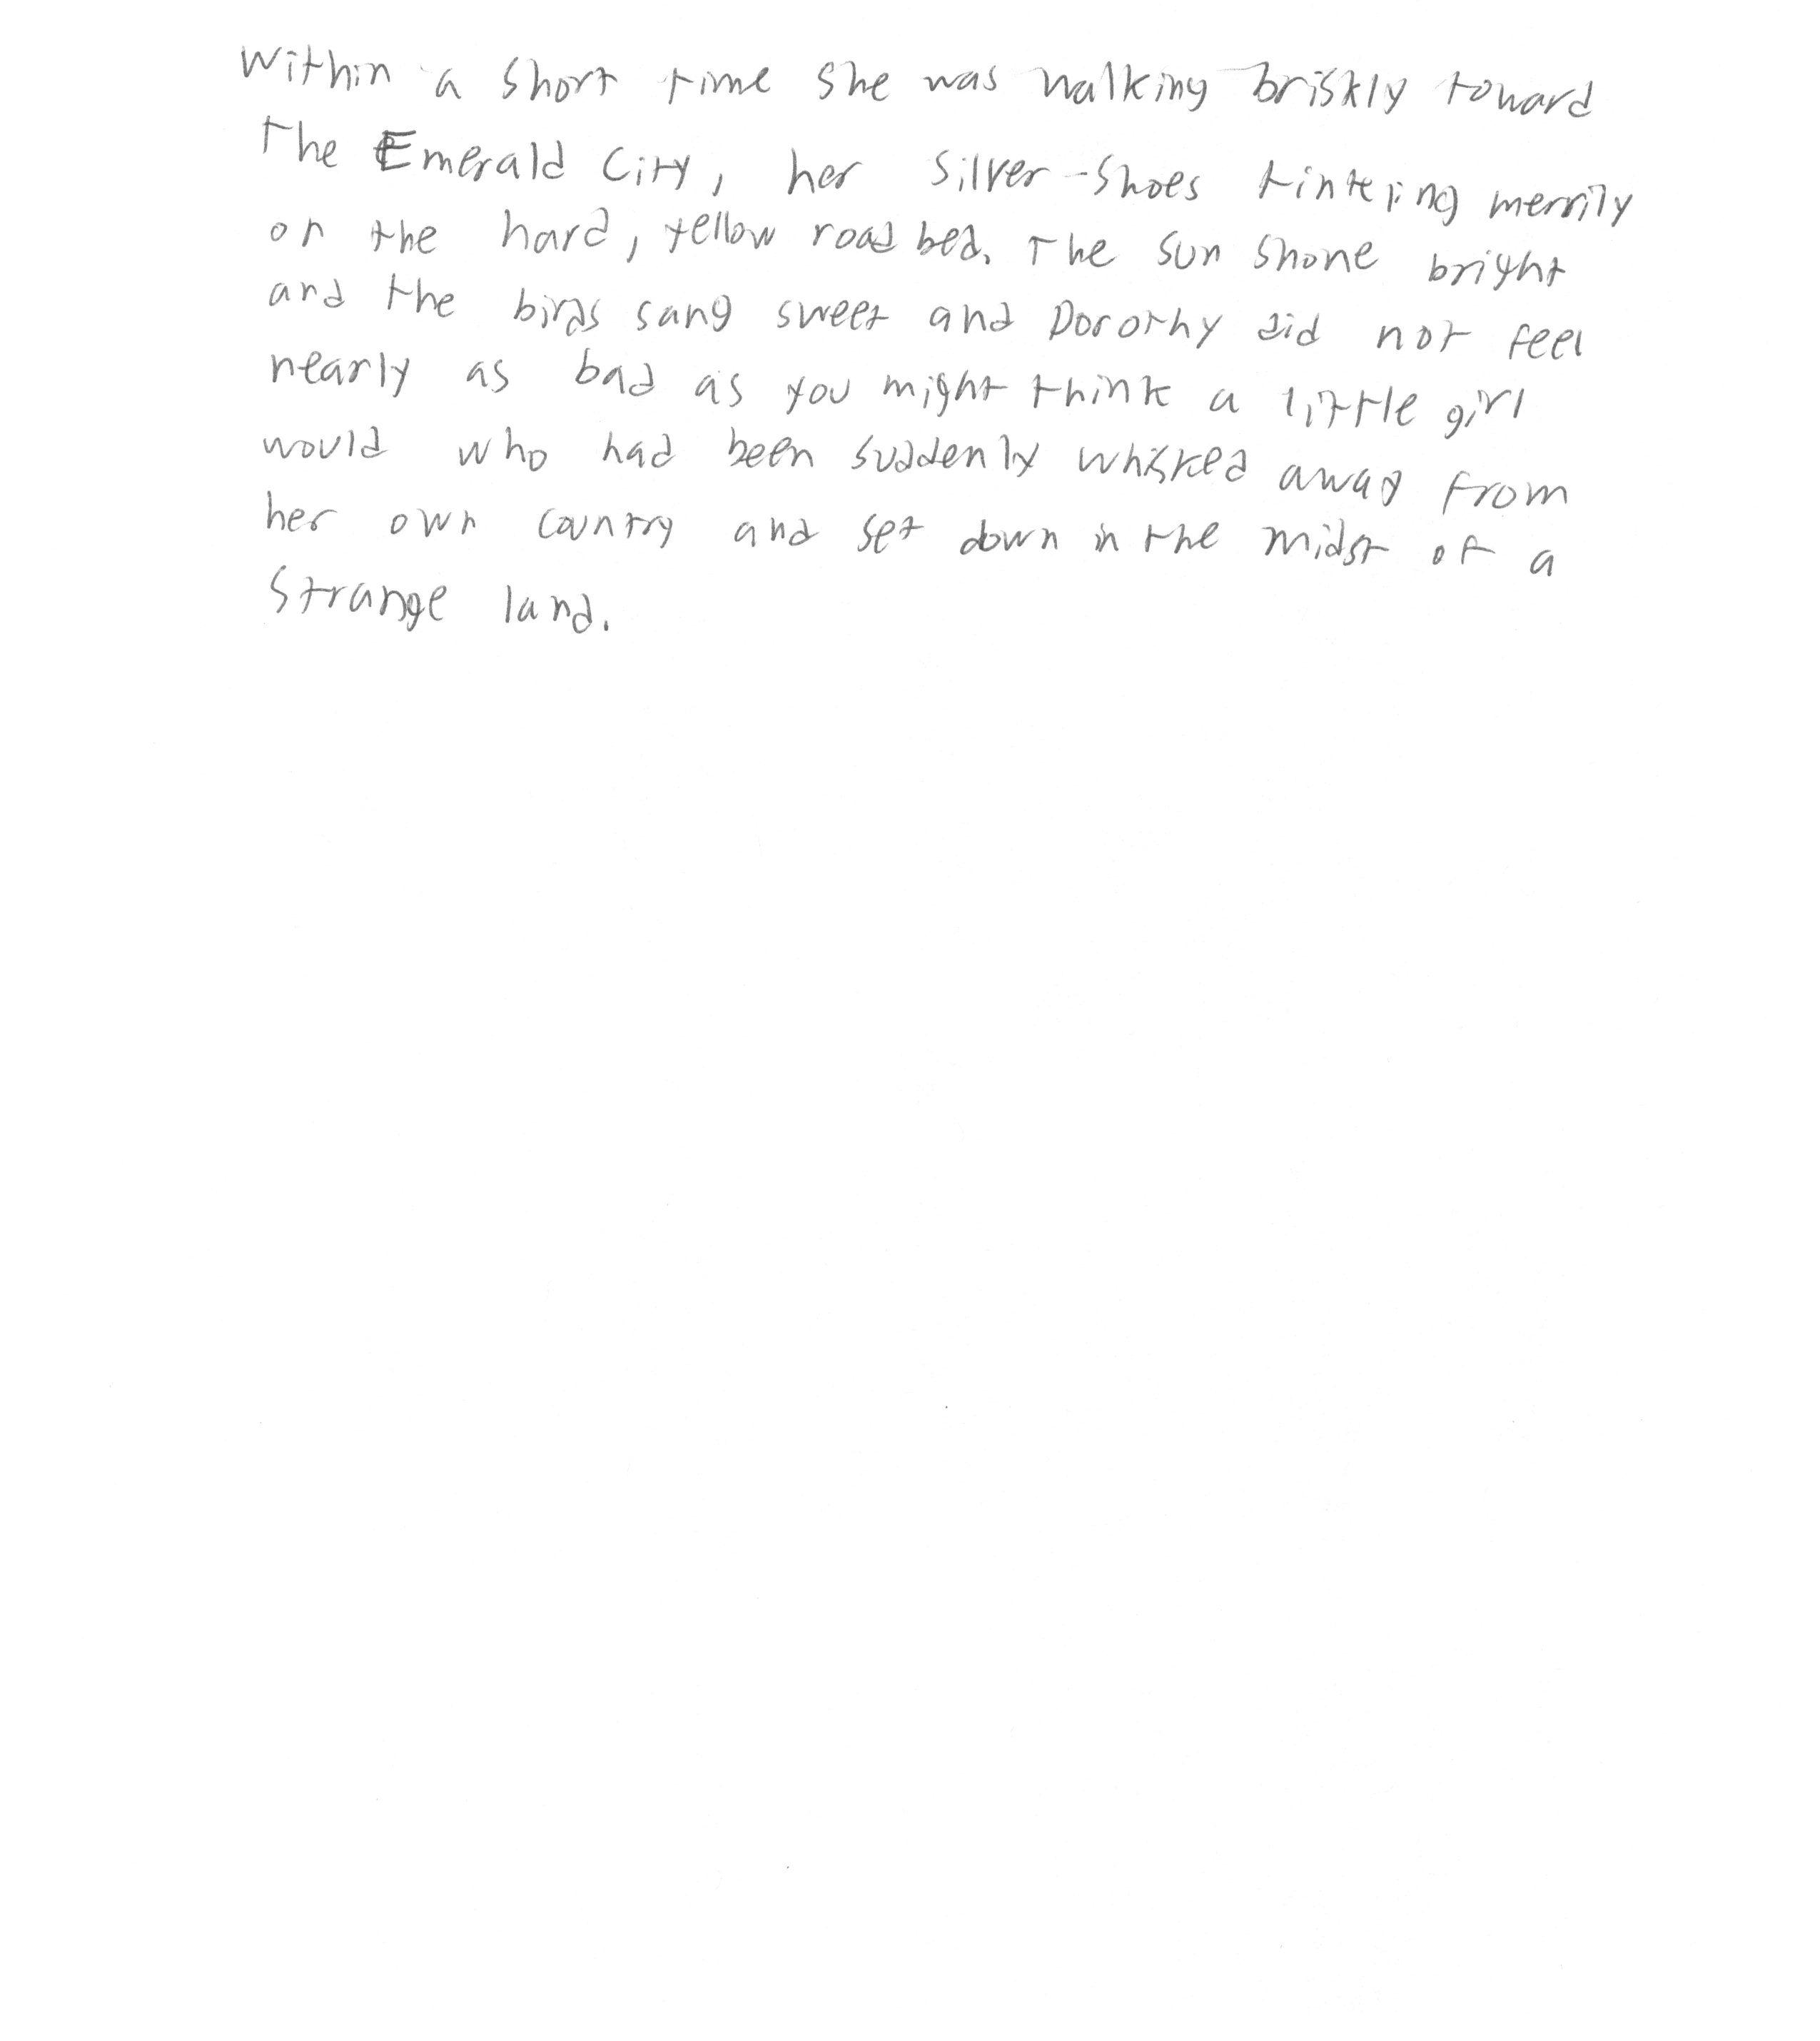 Within a short time she was walking briskly toward
the Emerald City, her silver-shoes tinkling merrily
on the hard, yellow road bed. The sun shone bright
and the birds sang sweet and Dorothy did not feel
nearly as bad as you might think a little girl
would who had been suddenly whisked away from
her own country and set down in the midst of a
strange land.